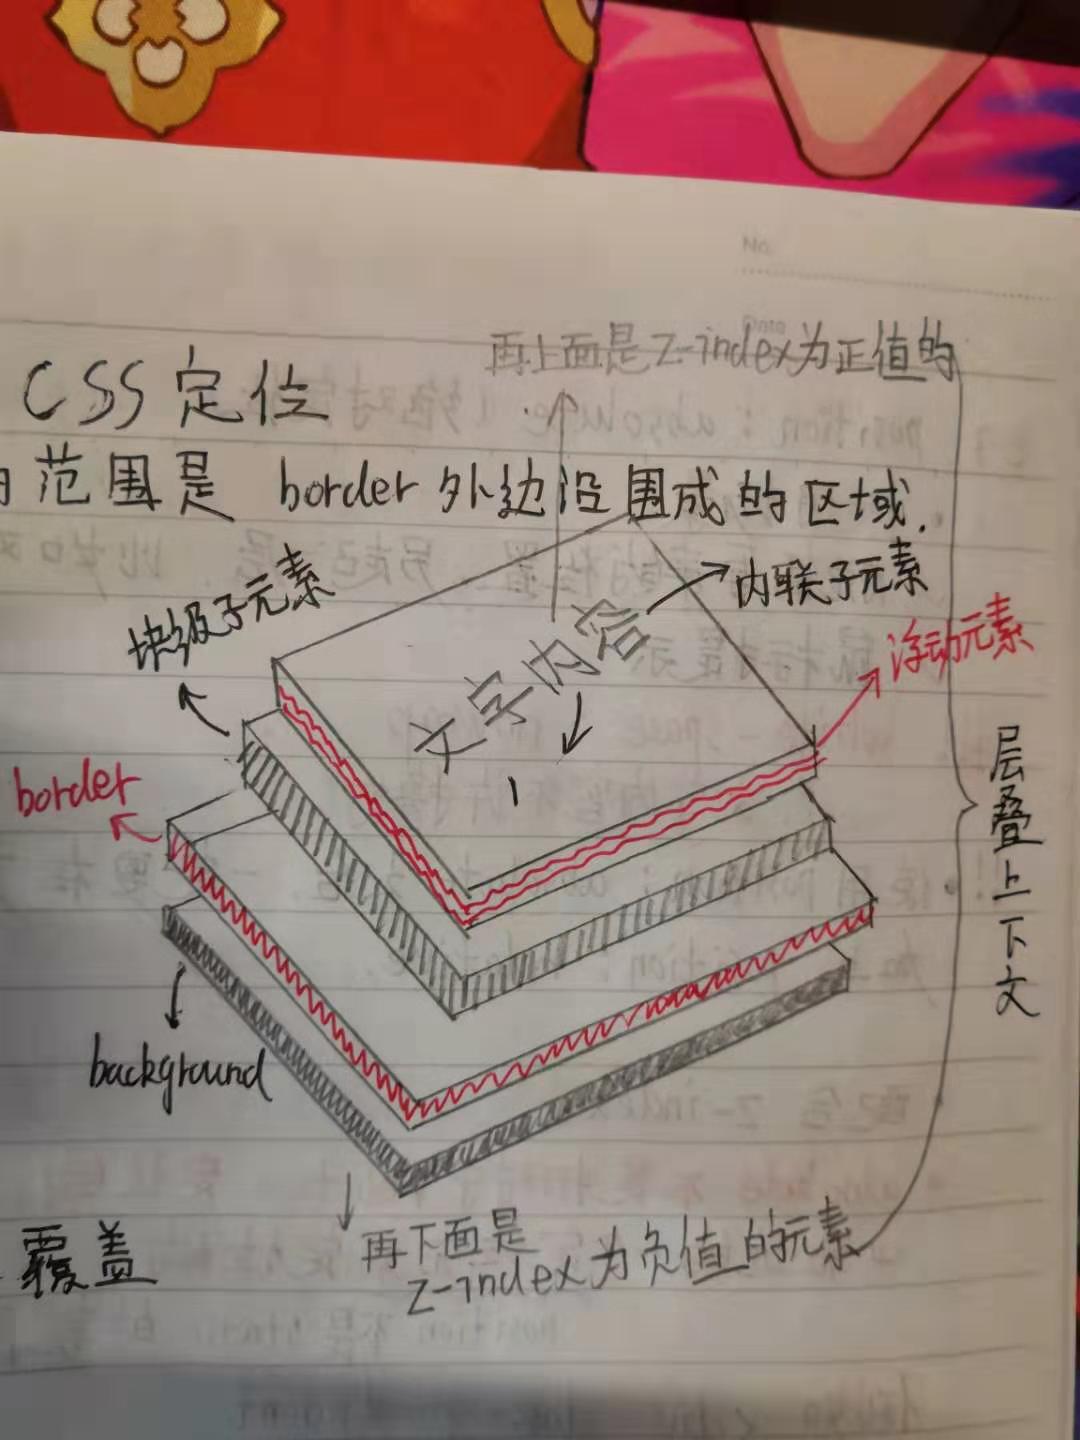 No
再上面是z-index为正值的
CSS定位
范围是 border外边沿围成的区域.
块级子元素
内联子元素
文字内容
浮动元素
border
层叠上下文
background
再下面是
z-index为负值的元素
覆盖